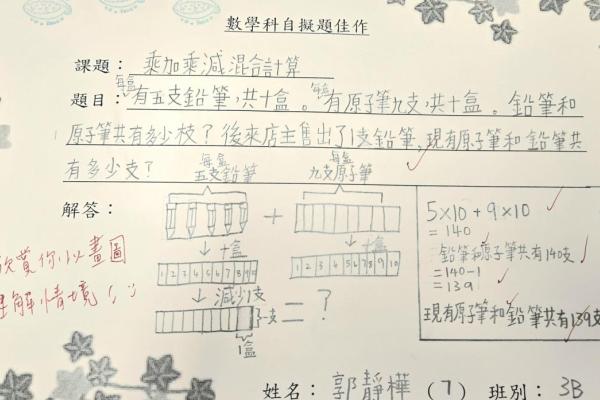 數學科自擬題佳作
課題：乘加乘減混合計算
題目：每盒有五支鉛筆，共十盒。每盒有原子筆九支，共十盒。鉛筆和
原子筆共有多少枝？後來店主售出了1支鉛筆，現有原子筆和鉛筆共
有多少支？
每盒 五支鉛筆
每盒 九支原子筆
解答：
+
↓十盒
↓十盒
1 2 3 4 5 6 7 8 9 10
1 2 3 4 5 6 7 8 9 10
↓減少1支
一支
= ?
1盒
5×10+9×10
=140
鉛筆和原子筆共有140支
=140-1
=139
現有原子筆和鉛筆共有139支
欣賞你以畫圖
理解情境
姓名：郭靜樺（7） 班別：3B